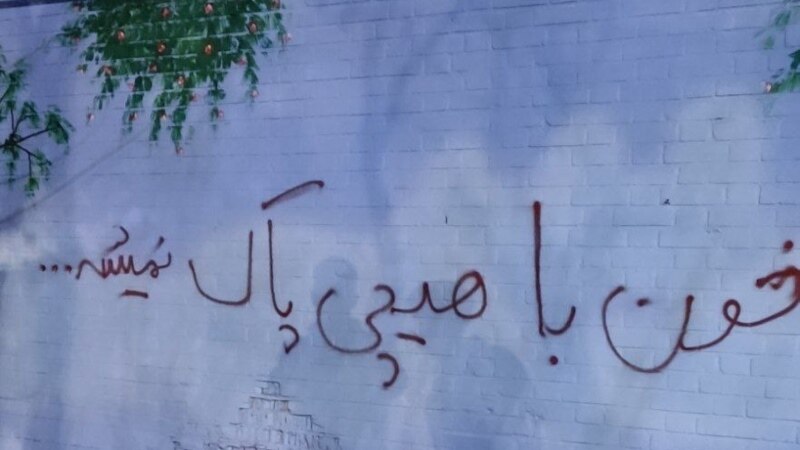 خون با هیچی پاک نمیشه...